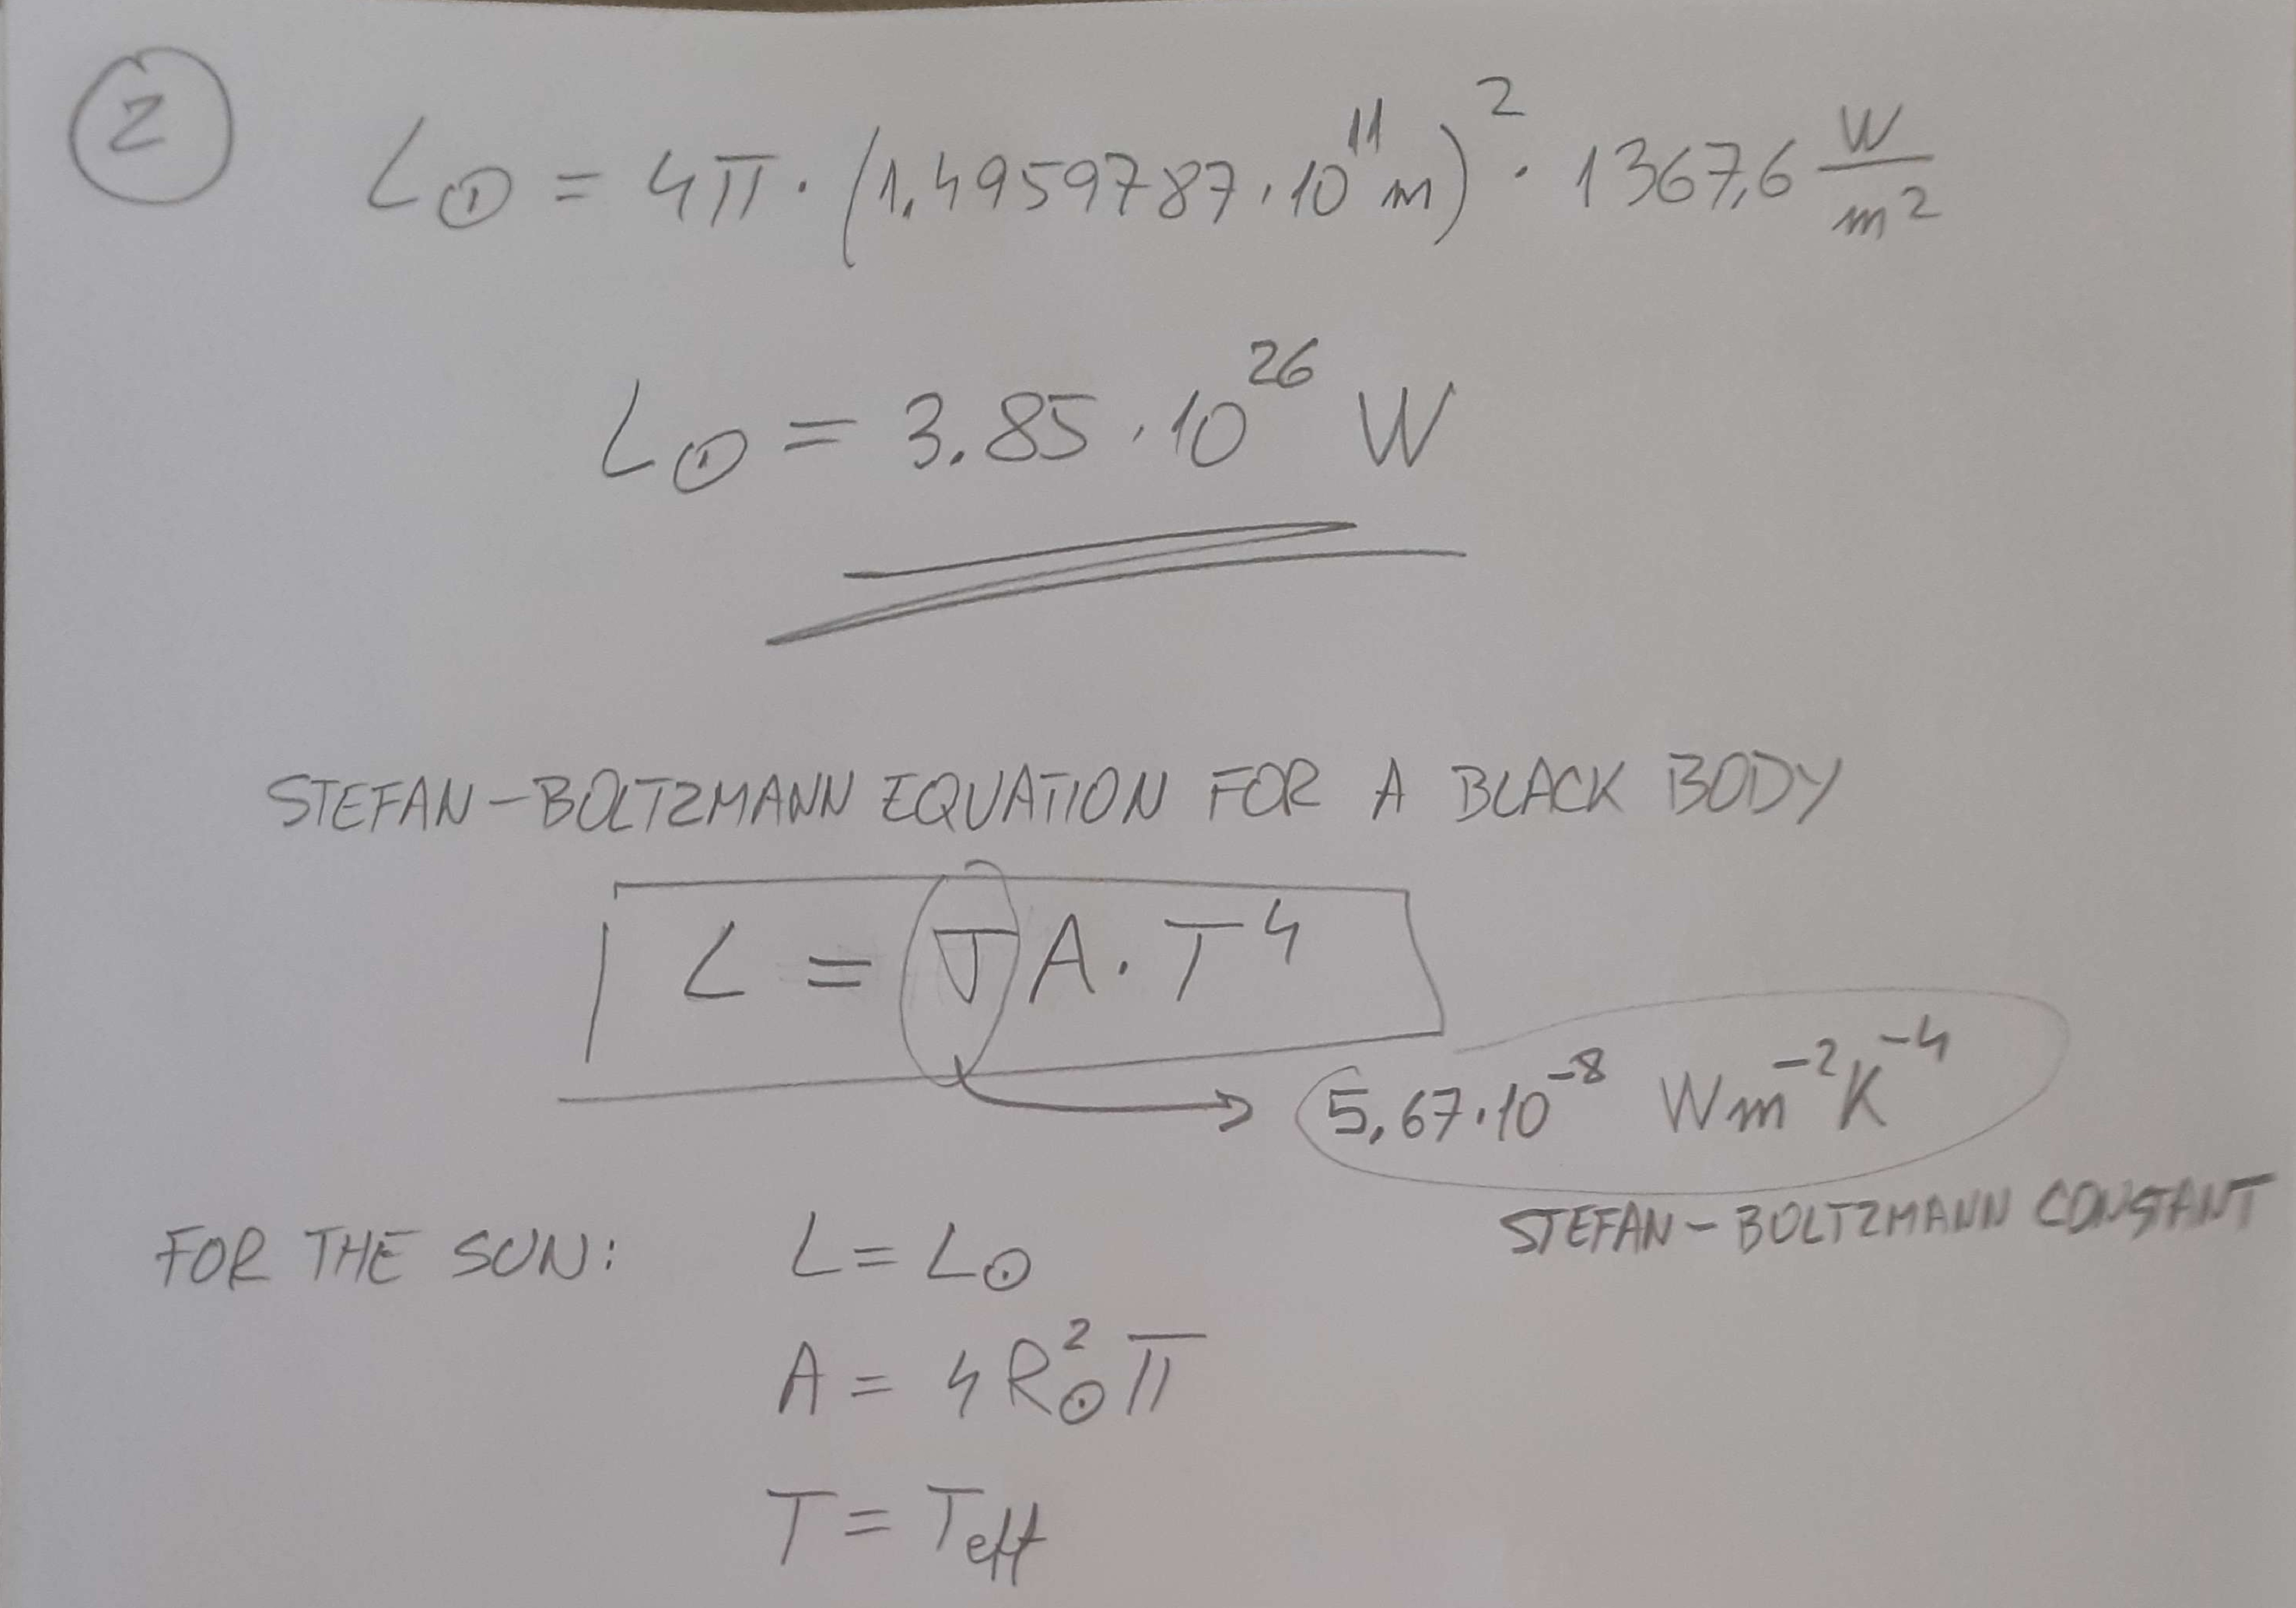 2
L☉ = 4π · (1,4959787 · 10¹¹ m)² · 1367,6 W/m²
L☉ = 3.85 · 10²⁶ W
STEFAN-BOLTZMANN EQUATION FOR A BLACK BODY
L = σ A · T⁴
5,67 · 10⁻⁸ Wm⁻²K⁻⁴
STEFAN-BOLTZMANN CONSTANT
FOR THE SUN: L = L☉
A = 4R☉²π
T = Teff